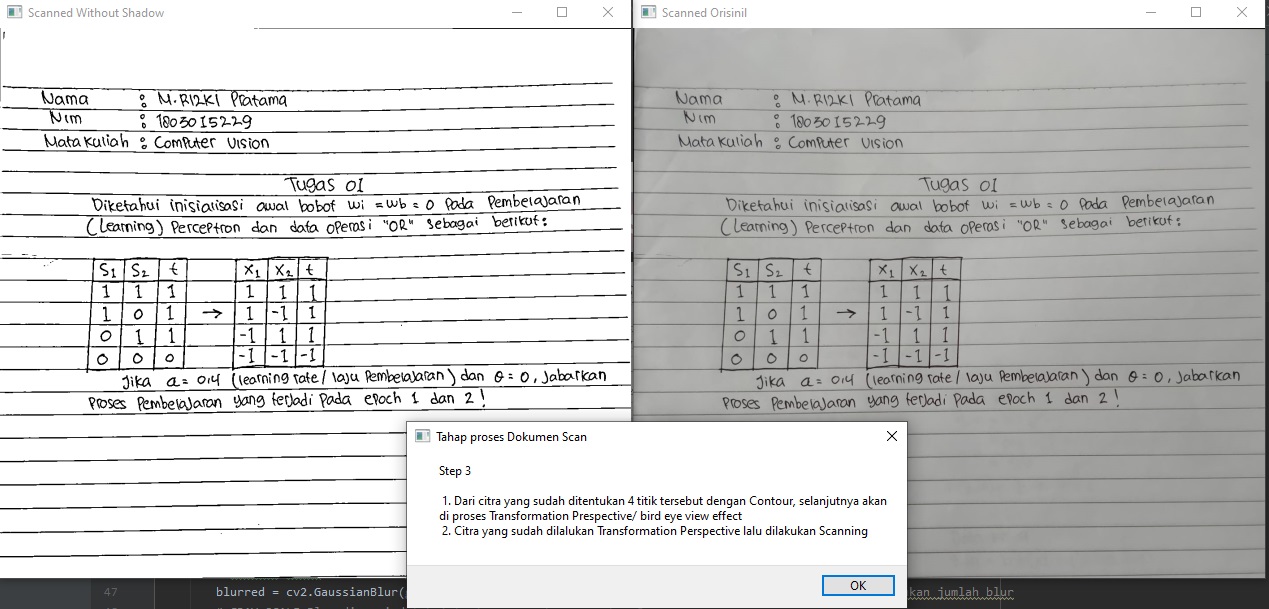 Scanned Without Shadow
Nama : M. RIZKI Pratama
Nim : 1803015229
Matakuliah : Computer Vision
Tugas 01
Diketahui inisialisasi awal bobot wi = wb = 0 Pada Pembelajaran
(Learning) Perceptron dan data operasi "OR" sebagai berikut:
S1 S2 t X1 X2 t
1 1 1 1 1 1
1 0 1 → 1 -1 1
0 1 1 -1 1 1
0 0 0 -1 -1 -1
Jika a = 0,4 (learning rate / laju Pembelajaran) dan θ = 0, Jabarkan
Proses Pembelajaran yang terjadi Pada epoch 1 dan 2!
Scanned Orisinil
Nama : M. RIZKI Pratama
Nim : 1803015229
Matakuliah : Computer Vision
Tugas 01
Diketahui inisialisasi awal bobot wi = wb = 0 Pada Pembelajaran
(Learning) Perceptron dan data operasi "OR" sebagai berikut:
S1 S2 t X1 X2 t
1 1 1 1 1 1
1 0 1 → 1 -1 1
0 1 1 -1 1 1
0 0 0 -1 -1 -1
Jika a = 0,4 (learning rate / laju Pembelajaran) dan θ = 0, Jabarkan
Proses Pembelajaran yang terjadi Pada epoch 1 dan 2!
Tahap proses Dokumen Scan
Step 3
1. Dari citra yang sudah ditentukan 4 titik tersebut dengan Contour, selanjutnya akan
di proses Transformation Prespective/ bird eye view effect
2. Citra yang sudah dilalukan Transformation Perspective lalu dilakukan Scanning
OK
47 blurred = cv2.GaussianBlur( kan jumlah blur